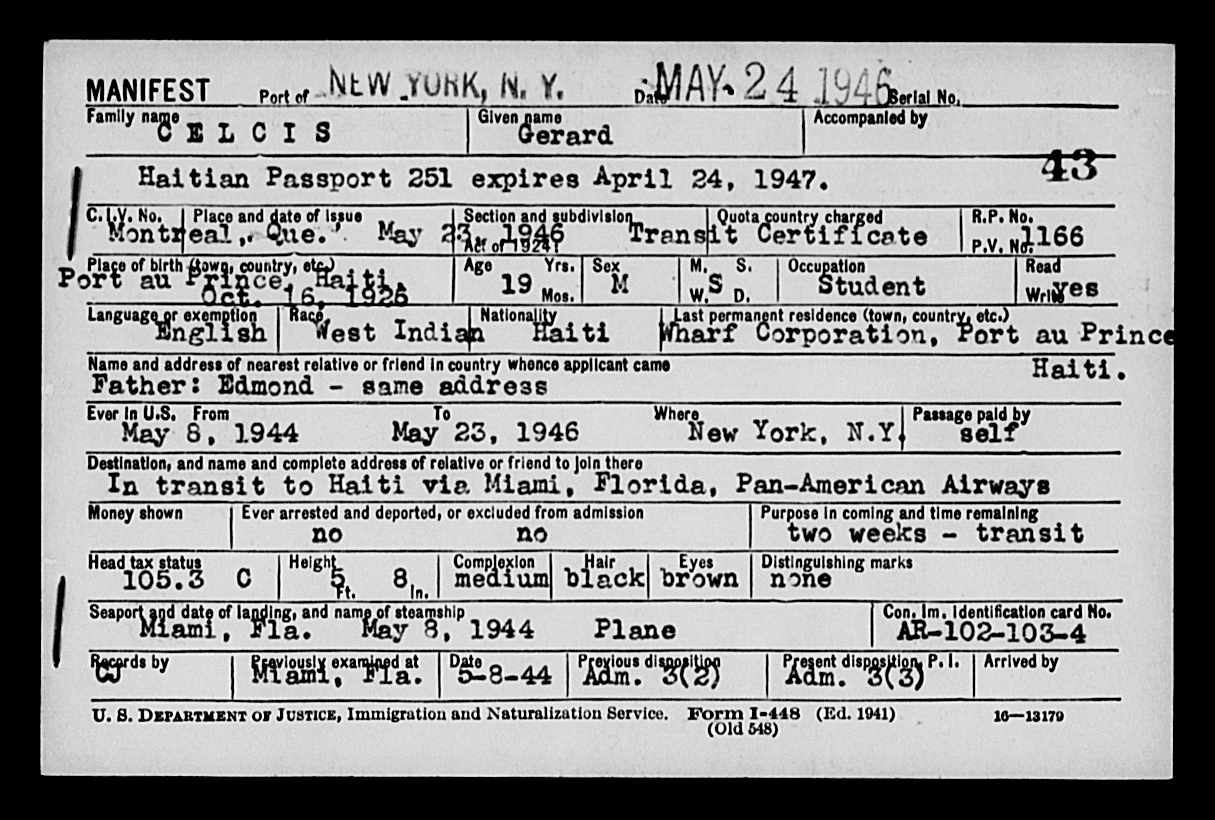 MANIFEST Port of NEW YORK, N. Y. Date MAY 24 1946 Serial No.
Family name CELCIS Given name Gerard Accompanied by
43
Haitian Passport 251 expires April 24, 1947.
C.I.V. No. Place and date of issue Section and subdivision Quota country charged R.P. No.
Montreal, Que. May 23, 1946 Transit Certificate 1166
Act of 1924 P.V. No.
Place of birth (town, country, etc.) Age Yrs. Sex M. S. Occupation Read
Port au Prince, Haiti. 19 M S Student yes
Oct. 16, 1926 Mos. W. D. Write
Language or exemption Race Nationality Last permanent residence (town, country, etc.)
English West Indian Haiti Wharf Corporation, Port au Prince
Name and address of nearest relative or friend in country whence applicant came Haiti.
Father: Edmond - same address
Ever in U.S. From To Where Passage paid by
May 8, 1944 May 23, 1946 New York, N.Y. self
Destination, and name and complete address of relative or friend to join there
In transit to Haiti via Miami, Florida, Pan-American Airways
Money shown Ever arrested and deported, or excluded from admission Purpose in coming and time remaining
no no two weeks - transit
Head tax status Height Complexion Hair Eyes Distinguishing marks
105.3 C 5 8 medium black brown none
Ft. In.
Seaport and date of landing, and name of steamship Con. Im. Identification card No.
Miami, Fla. May 8, 1944 Plane AR-102-103-4
Records by Previously examined at Date Previous disposition Present disposition, P. I. Arrived by
CJ Miami, Fla. 5-8-44 Adm. 3(2) Adm. 3(3)
U. S. DEPARTMENT OF JUSTICE, Immigration and Naturalization Service. Form I-448 (Ed. 1941) 16—13179
(Old 548)